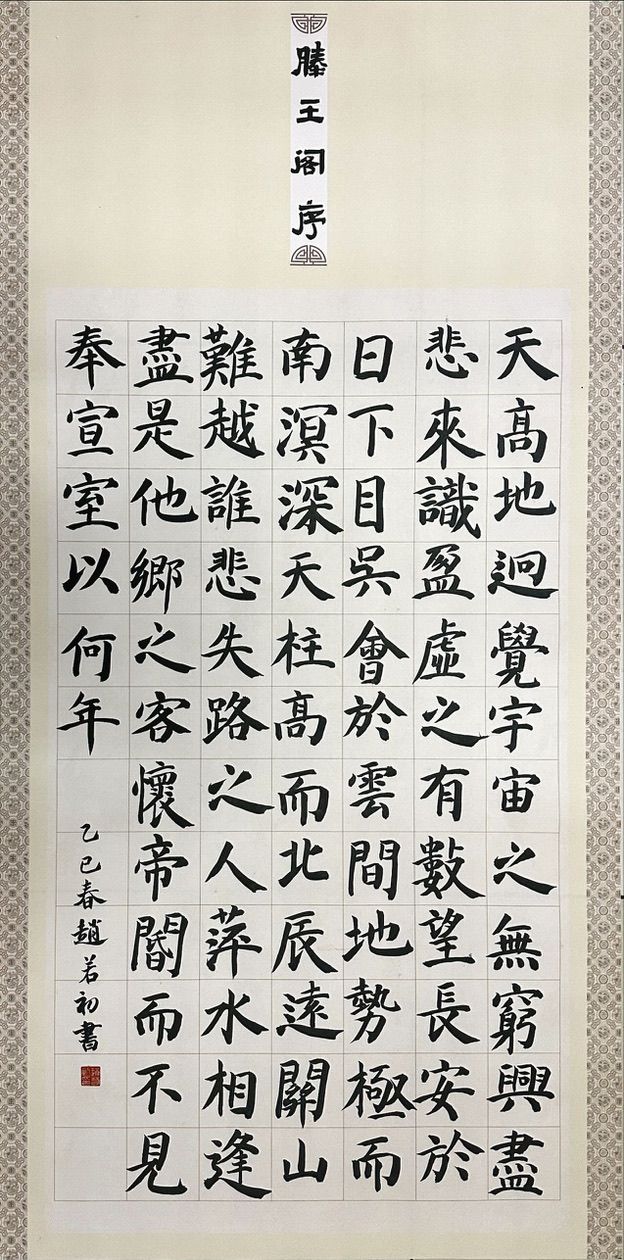 滕王阁序
天高地迥覺宇宙之無窮興盡
悲來識盈虛之有數望長安於
日下目吳會於雲間地勢極而
南溟深天柱高而北辰遠關山
難越誰悲失路之人萍水相逢
盡是他鄉之客懷帝閽而不見
奉宣室以何年
乙巳春趙若初書